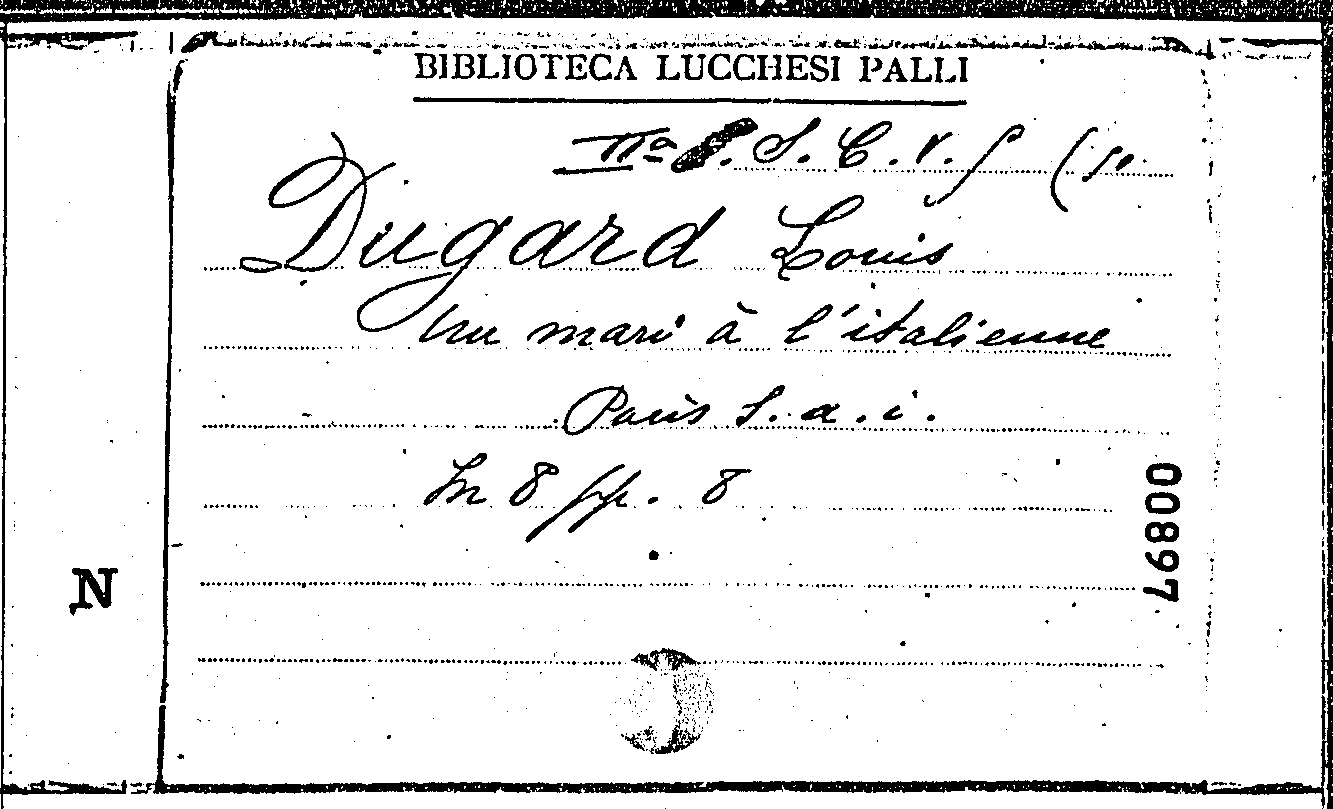 BIBLIOTECA LUCCHESI PALLI
IIª S. C. V.
Dugard Louis
Un mari à l'italienne
Paris S. a. i.
In 8 pp. 8
00897
N